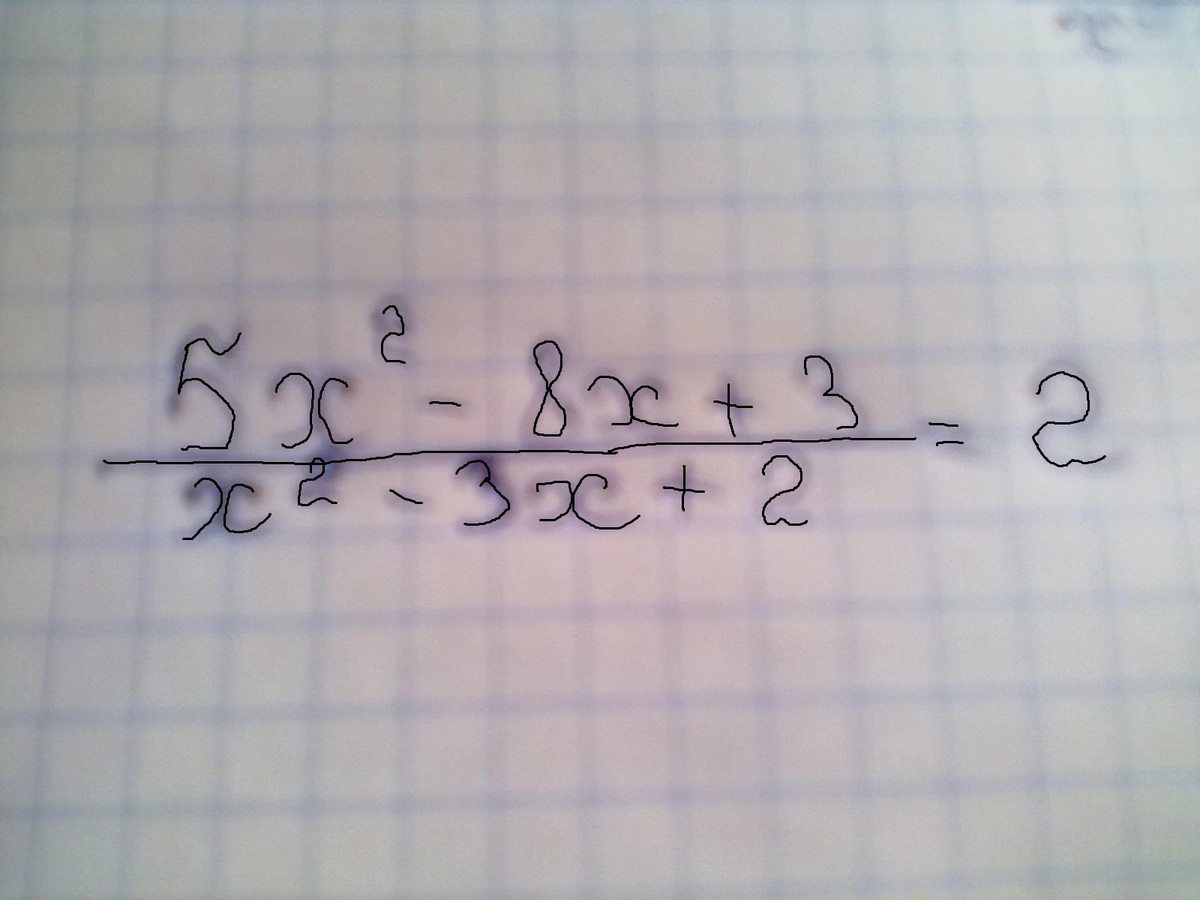 5x² - 8x + 3
x² - 3x + 2
= 2